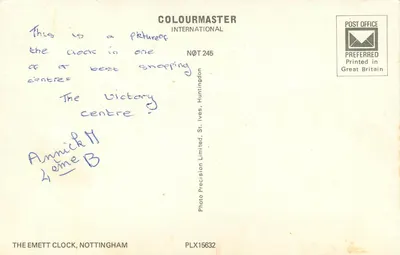 COLOURMASTER
INTERNATIONAL
NØT 245
POST OFFICE
PREFERRED
Printed in
Great Britain
This is a
the clock in one
best shopping
centres
The Victory
centre!
Annick M
4ème B
Photo Precision Limited, St. Ives, Huntingdon
THE EMETT CLOCK, NOTTINGHAM
PLX15632